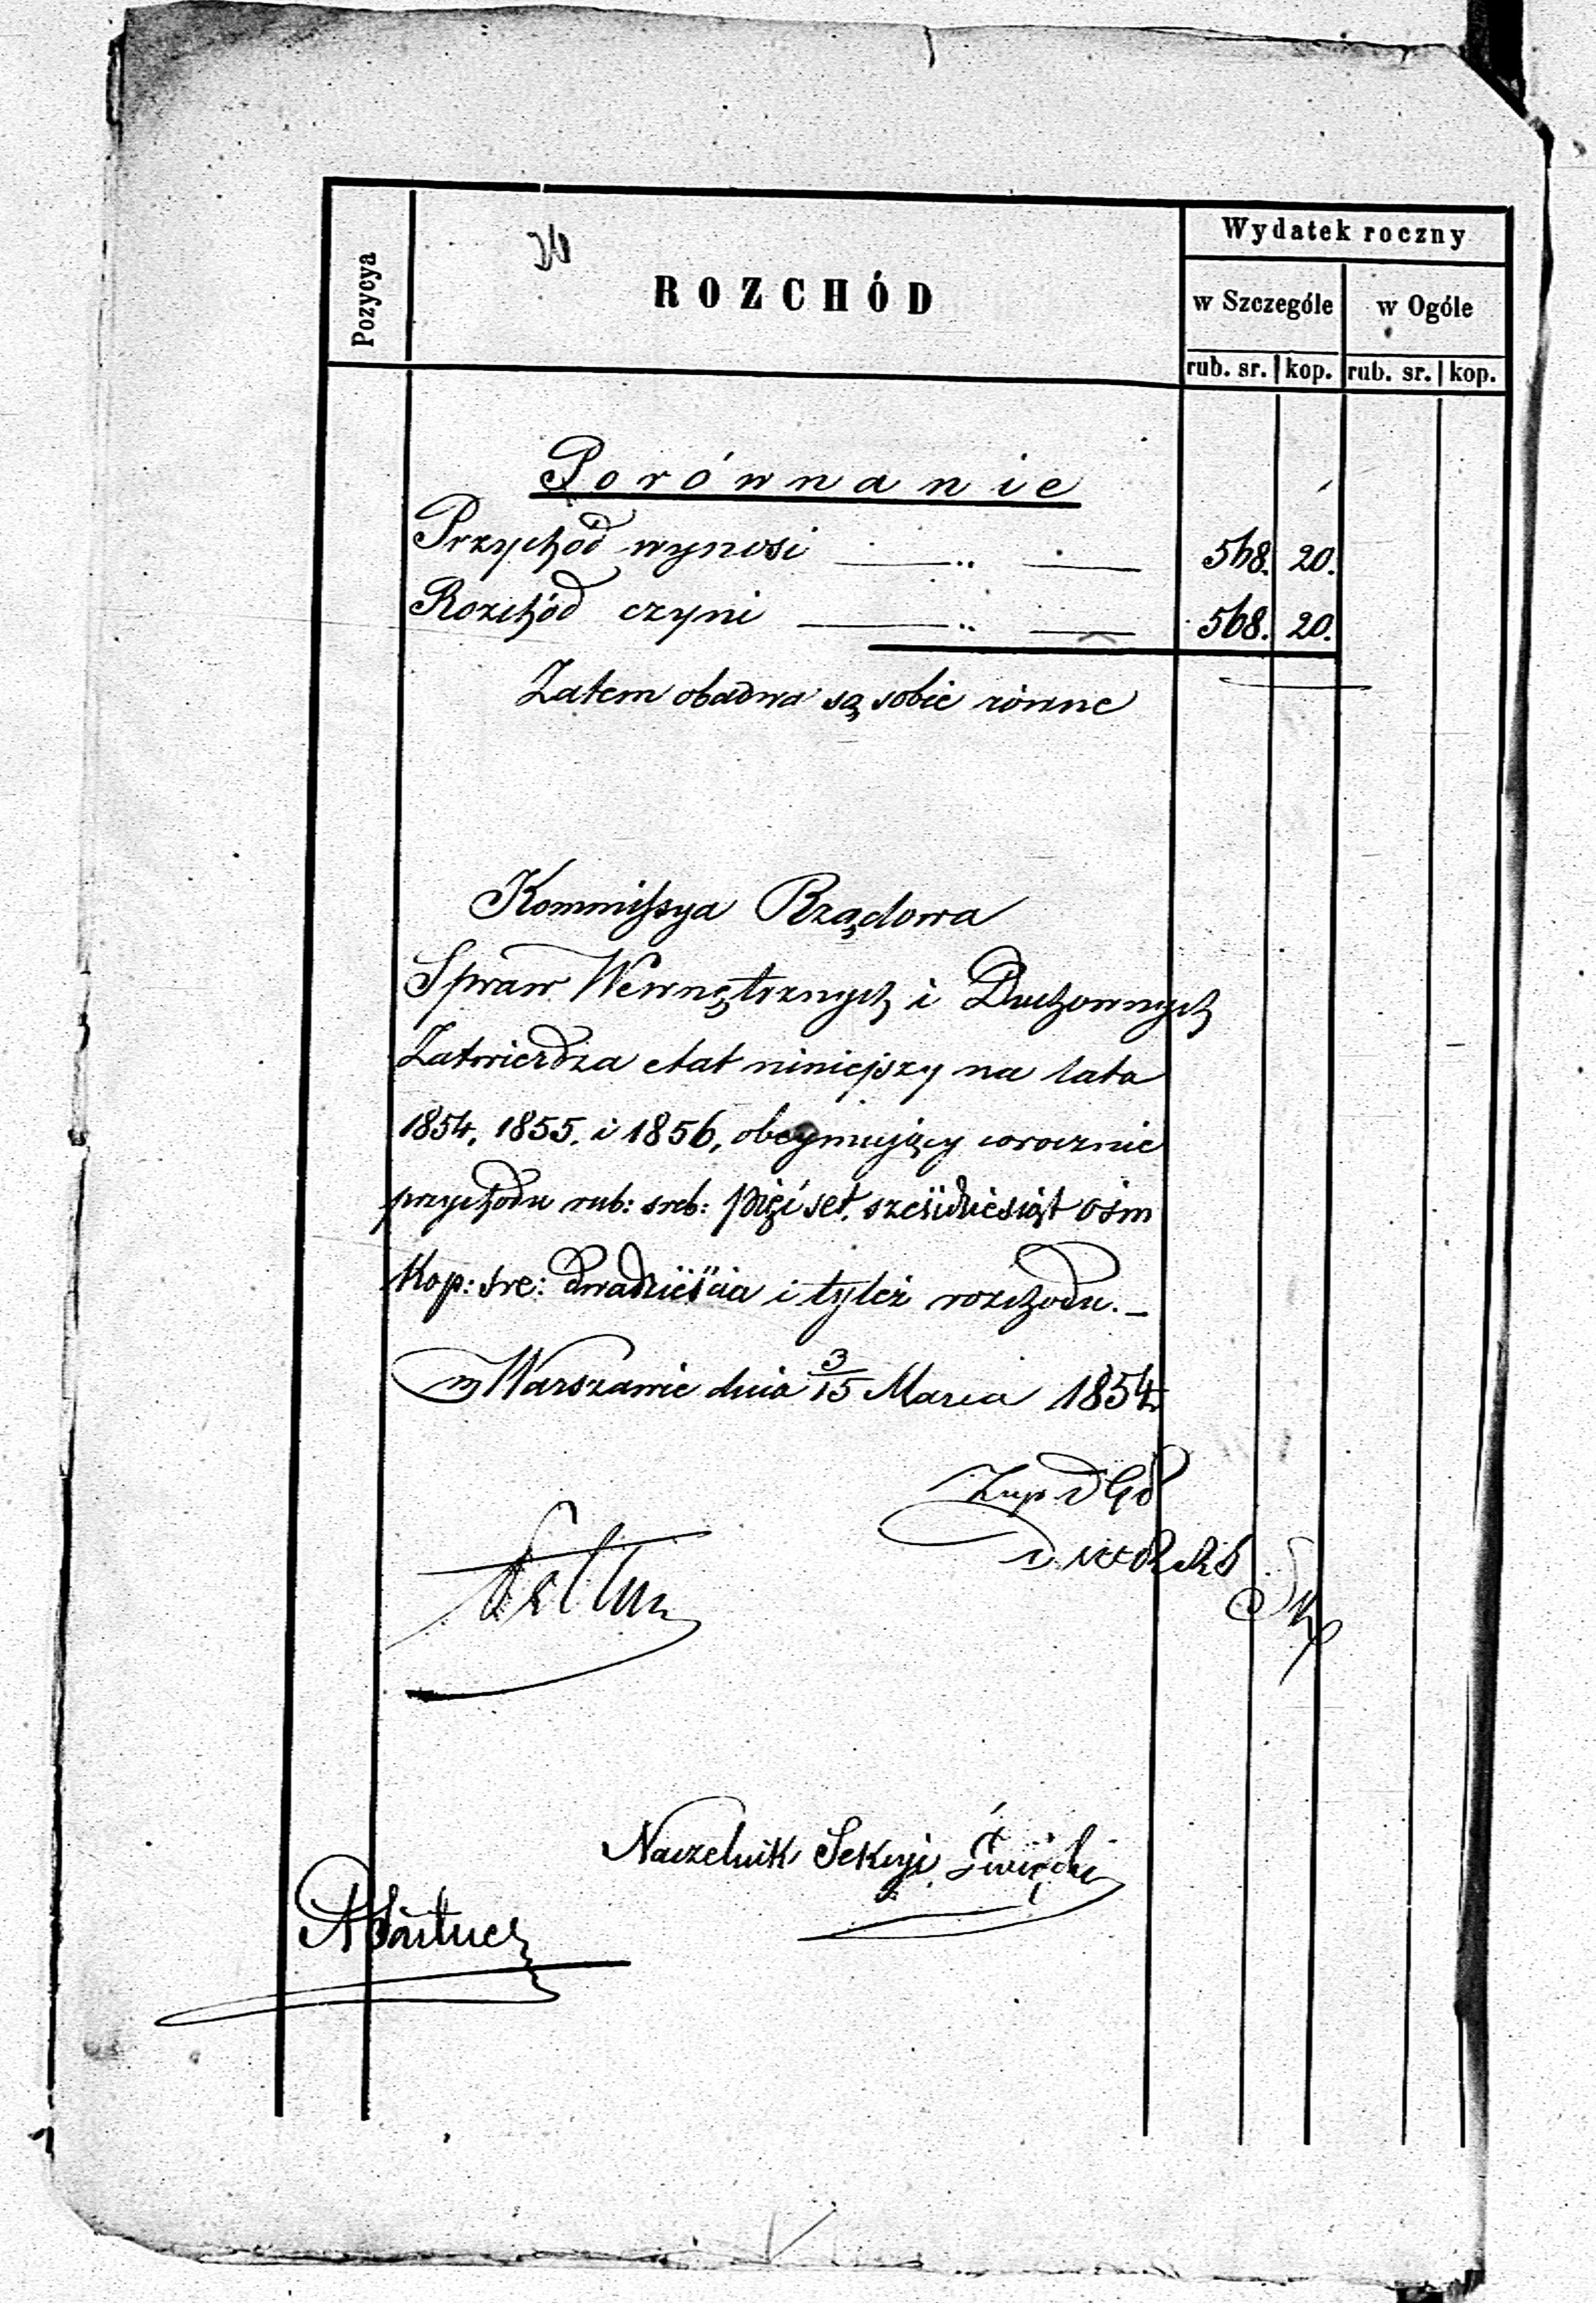 Wydatek roczny
Pozycya
ROZCHÓD
w Szczególe
w Ogóle
rub. sr. kop. rub. sr. kop.
Porównanie
Przychód wynosi 568. 20.
Rozchód czyni 568. 20.
Zatem obadwa są sobie równe
Kommissya Rządowa
Spraw Wewnętrznych i Duchownych
Zatwierdza etat niniejszy na lata
1854, 1855. i 1856, obeymujący corocznie
przychodu rub: sreb: pięćset sześćdziesiąt ośm
Kop: sre: dwadzieścia i tyleż rozchodu. –
w Warszawie dnia 3/15 Marca 1854.
Naczelnik Sekcyi Święcki